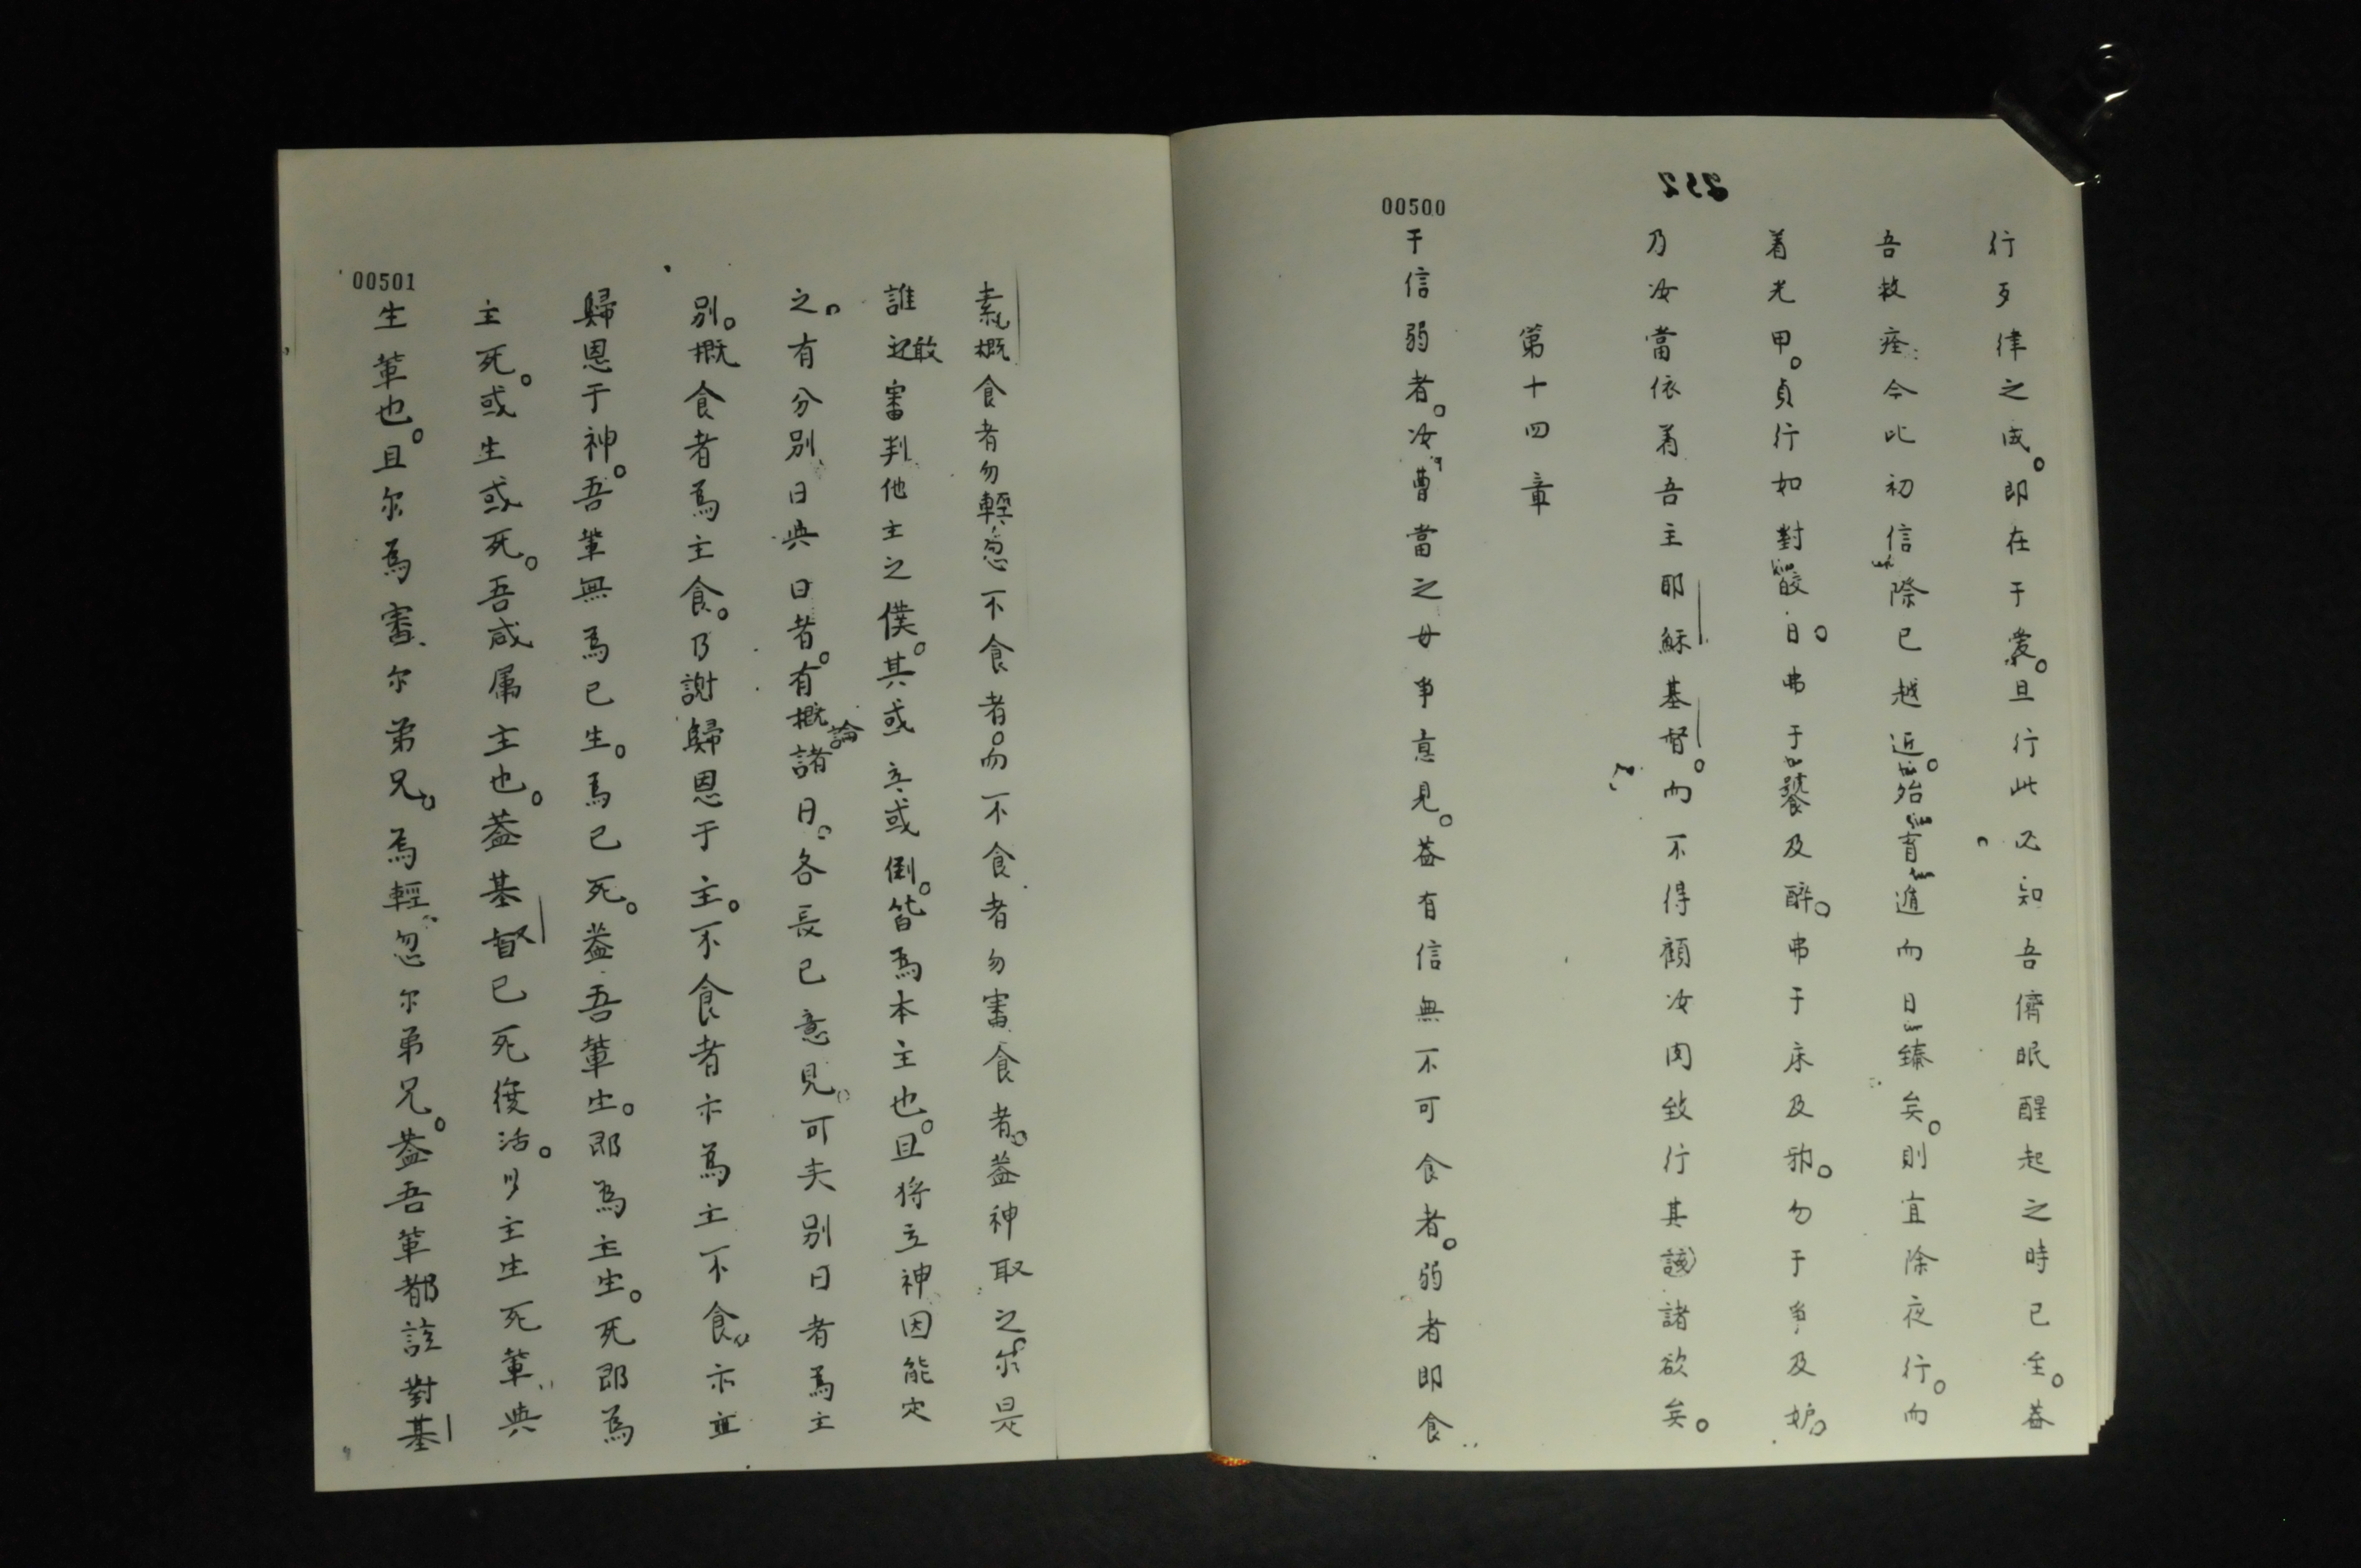 252
00500
行歹律之成。即在于愛。且行此必知吾儕眠醒起之時已至。蓋
吾救痊今比初信際已越近。殆育遁而日臻矣。則宜除夜行。而
着光甲。貞行如對皎日。弗于饕及醉。弗于床及邪。勿于爭及妒。
乃汝當依着吾主耶穌基督。而不得顧汝肉致行其諸欲矣。
第十四章
于信弱者。汝曹當之毋爭意見。蓋有信無不可食者。弱者即食
素概食者勿輕忽不食者。而不食者勿審食者。蓋神取之。尔是
誰敢審判他主之僕。其或立或倒。皆為本主也。且将立神因能定
之。有分別日與日者。有概論諸日。各長已意見。可夫別日者為主
別。概食者為主食。乃謝歸恩于主。不食者亦為主不食。亦並
歸恩于神。吾輩無為已生。為已死。蓋吾輩生。即為主生。死即為
主死。或生或死。吾咸属主也。蓋基督已死復活以主生死輩與
生輩也。且尔為審尔弟兄。為輕忽尔弟兄。蓋吾輩都該對基
00501